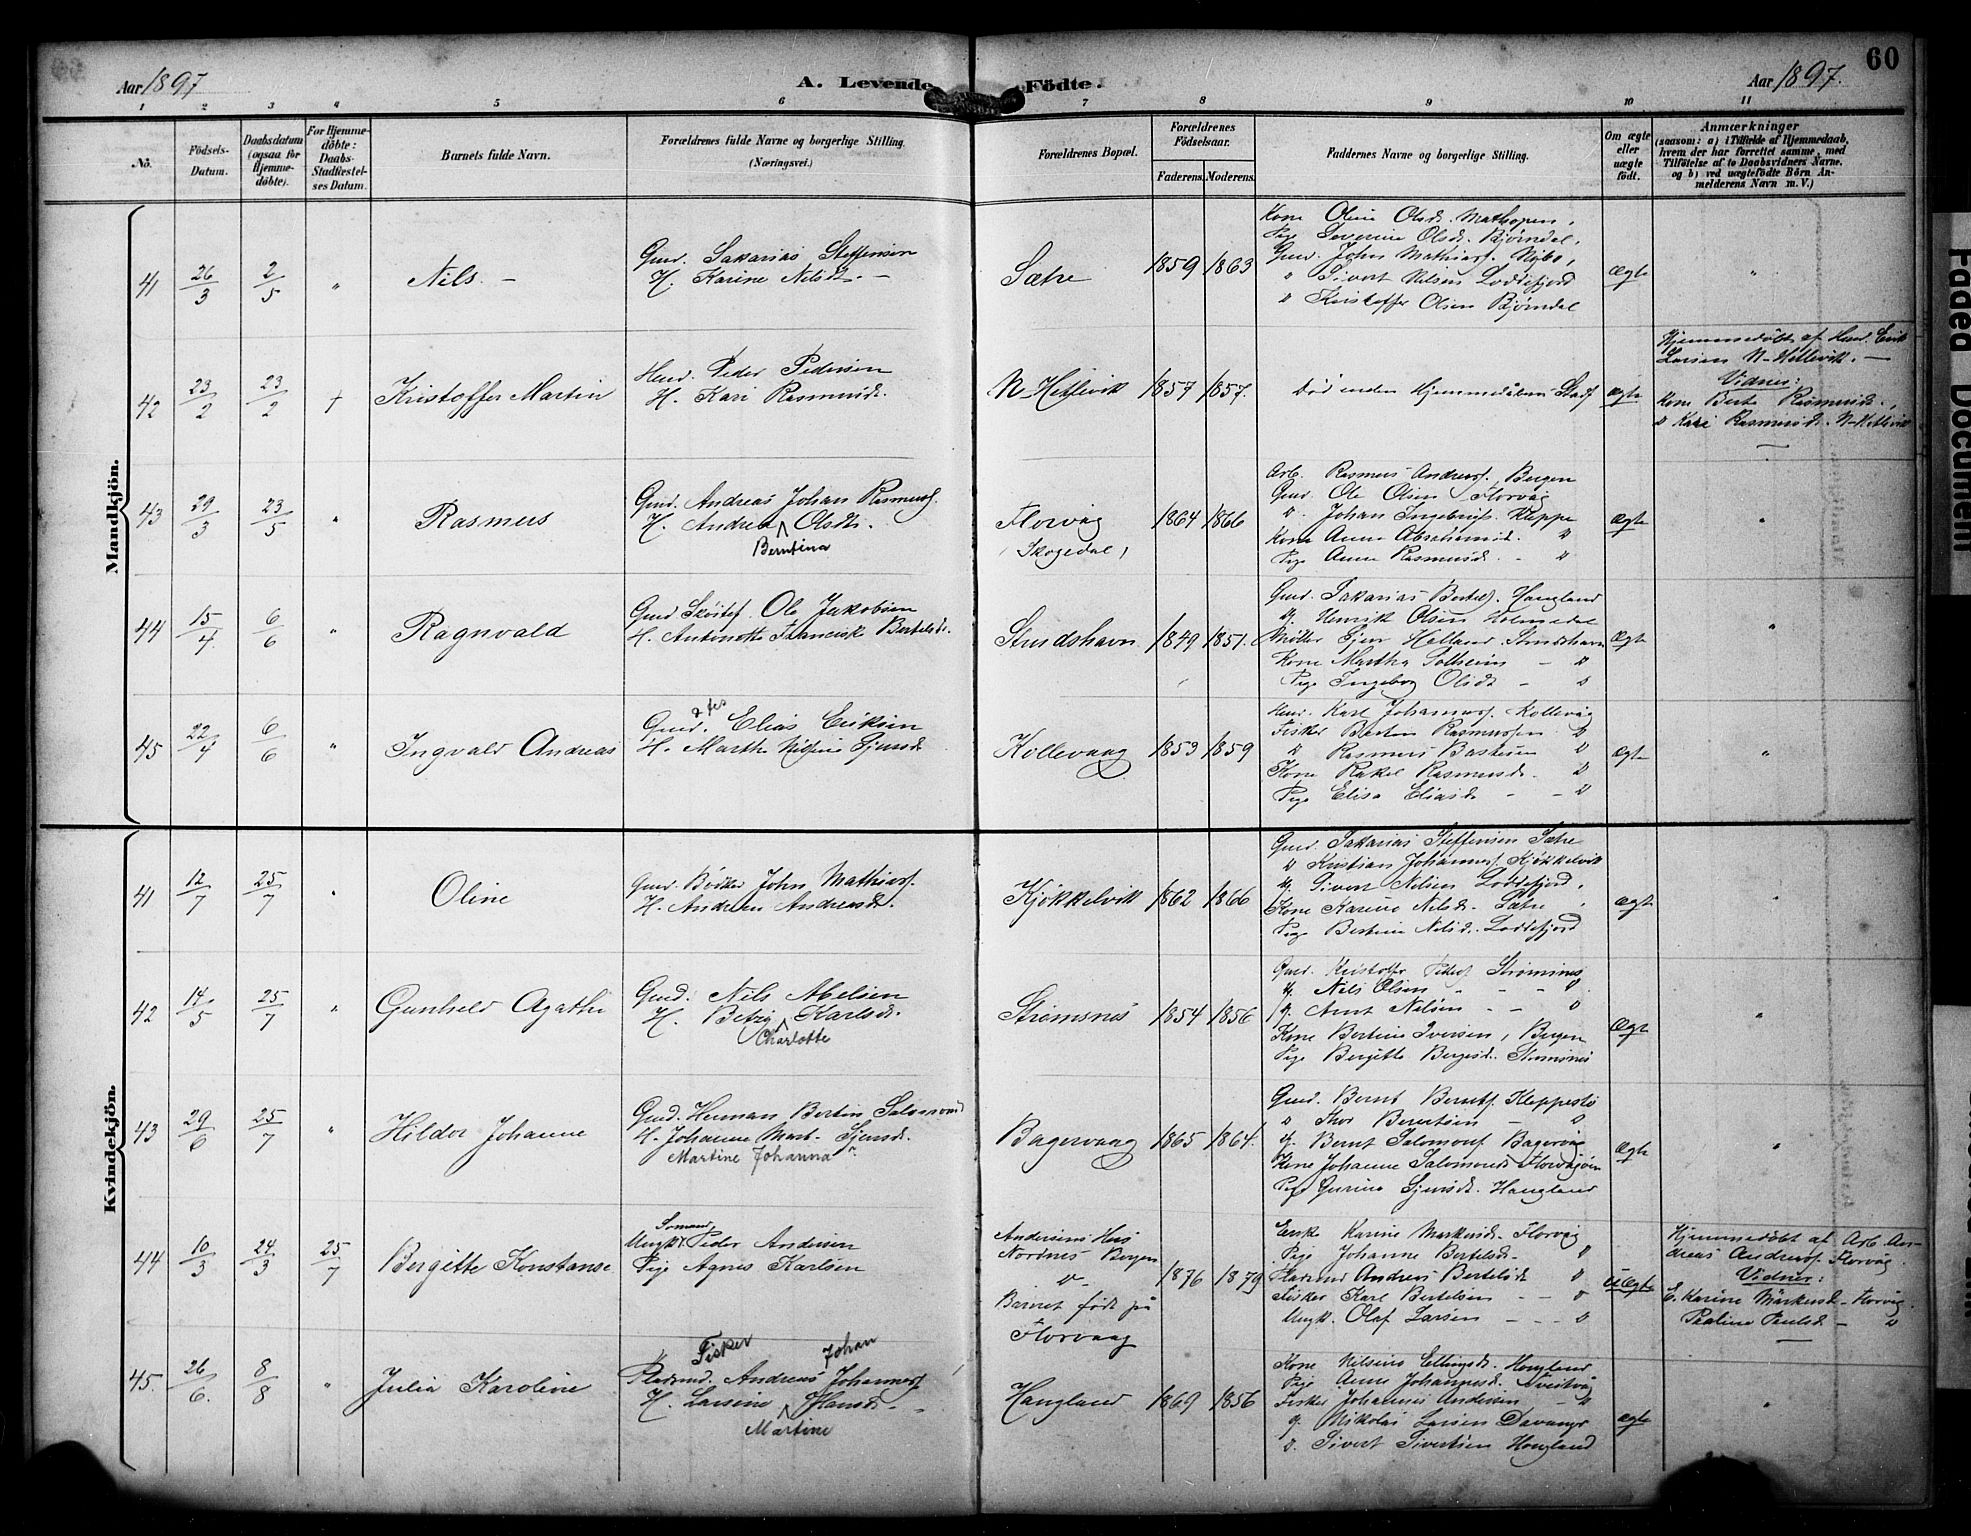 60
Aar 1897
A. Levende Födte.
Aar 1897.
1 2 3 4 5 6 7 8 9 10 11
No.
Födsels-Datum.
Daabsdatum (ogsaa for Hjemme-döbte).
For Hjemme-döbte: Daabs-Stadfæstel-ses Datum.
Barnets fulde Navn.
Forældrenes fulde Navne og borgerlige Stilling. (Næringsvei.)
Forældrenes Bopæl.
Forældrenes Födselsaar.
Faderens. Moderens.
Faddernes Navne og borgerlige Stilling.
Om ægte eller uægte födt.
Anmærkninger
(saasom: a) i Tilfælde af Hjemmedaab, hvem der har forrettet samme, med Tilföielse af to Daabsvidners Navne, og b) ved uægtefödte Börn An-melderens Navn m. V.)
Mandkjön.
41 26/3 2/5 " Nils. -
Gmd. Sakarias Steffensen
H. Karine Nilsdt. -
Sætre 1859 1863
Kone Oline Olsdt. Mathopen,
Pige Severine Olsdt. Bjørndal,
Gmd. John Mathiass. Nybø,
" Sivert Nilsen Loddefjord
" Kristoffer Olsen Bjørndal
Ægte "
42 23/2 23/2 † Kristoffer Martin
Hmd. Peder Pedersen
H. Kari Rasmusdt.
N-Hetlevik 1857 1857.
Død inden Hjemmedåbens Stadf.
ægte
Hjemmedøbt af Hmd. Erik
Larsen N-Hetlevik. -
Vidner:
Kone Berte Rasmusdt.,
" Kari Rasmusdt. N-Hetlevik
43 29/3 23/5 " Rasmus
Gmd. Andreas Johan Rasmuss.
H. Andrea Olsdt.
Berntina
Florvåg
(Skogedal) 1864 1866
Arb. Rasmus Andreass. Bergen
Gmd. Ole Olsen Florvåg
". Johan Ingebrigts. Kleppe
Kone Anna Abrahamsdt. "
Pige Anna Rasmusdt. - "
Ægte "
44 15/4. 6/6 " Ragnvald
Gmd Skøitef. Ole Jakobsen
H. Antonette Francisk Bertelsdt.
Strudshavn. 1849 1851.
Gmd. Sakarias Bertels. Haugland
". Henrik Olsen Holmedal
Møller Gjert Helland Strudshavn
Kone Martha Solheim - "
Pige Ingeborg Olsdt - "
Ægte "
45 22/4 6/6 " Ingvald Andreas
Gmd. Elias Eriksen
H. Marthe Gjertsdt
Kollevaag 1853 1859
Hmd. Karl Johanness. Kollevåg
Fisker Bertin Rasmussen "
" Rasmus "
Kone Rakel Rasmusdt. "
Pige Elisa Eliasdt - - "
Ægte "
Kvindekjön.
41 12/7 25/7 " Oline
Gmd. Bödker John Mathiass.
H. Andrea Andreasdt.
Kjøkkelvik 1862 1866
Gmd. Sakarias Steffensen Sætre
" Kristian Johanness. Kjøkkelvik
". Sivert Nilsen Loddefjord,
Kone Karine Nilsdt. Sætre
Pige Bertine Nilsdt. Loddefjord
Ægte "
42 14/5 25/7 " Gunhild Agathe
Gmd. Nils Abelsen
H. Betzy Karlsdt.
Charlotte
Strømsnes 1854 1856
Gmd. Kristoffer Peders Strømsnes
". Nils Olsen - - - "
". Arnt Nilsen - - "
Kone Bertine Iversen, Bergen
Pige Bergitte Børgesdt. Strømsnes
Ægte "
43 29/6 25/7 " Hilda Johanne
Gmd. Herman Bertin Salomons.
H. Johanne Mart. Gjertsdt.
Martine Johanna
Bagervaag 1865 1864.
Gmd. Bernt Bernts. Kleppestø
" Thor Berentsen - "
". Bernt Salomons. Bagervåg
Kone Johanne Salomonsdt Florvågøen
Pige Gurine Gjertsdt. Haugland
Ægte "
44 10/3 24/3 25/7 Bergitte Konstanse
Sømand,
Ungk. Peder Andersen
Pige Agnes Karlsen
Andersens Hus
Nordnes Bergen
Barnet født på
Florvaag
1876 1879
Enke Karine Markusdt. Florvåg
Pige Johanne Bertelsdt. "
Pladsmd Andreas Bertelsen "
Fisker Karl Bertelsen - - "
Ungk. Olaf Larsen - - - "
Uægte
Hjemmedøbt af Arb. An-
dreas Andreass. Florvåg.
Vidner:
E. Karine Markusdt. Florvåg.
Pauline Paulsdt - "
45. 26/6. 8/8 " Julia Karoline
Fisker Johan
Pladsmd. Andreas Johanness.
H. Larsine Hansdt. -
Martine
Haugland 1869 1856
Kone Nilsine Ellingsdt. Haugland
Pige Anne Johannesdt. Tveitvåg
Fisker Johannes Andersen - "
". Nikolai Larsen Davanger
". Sivert Sivertsen Haugland
ægte "
Faded Document